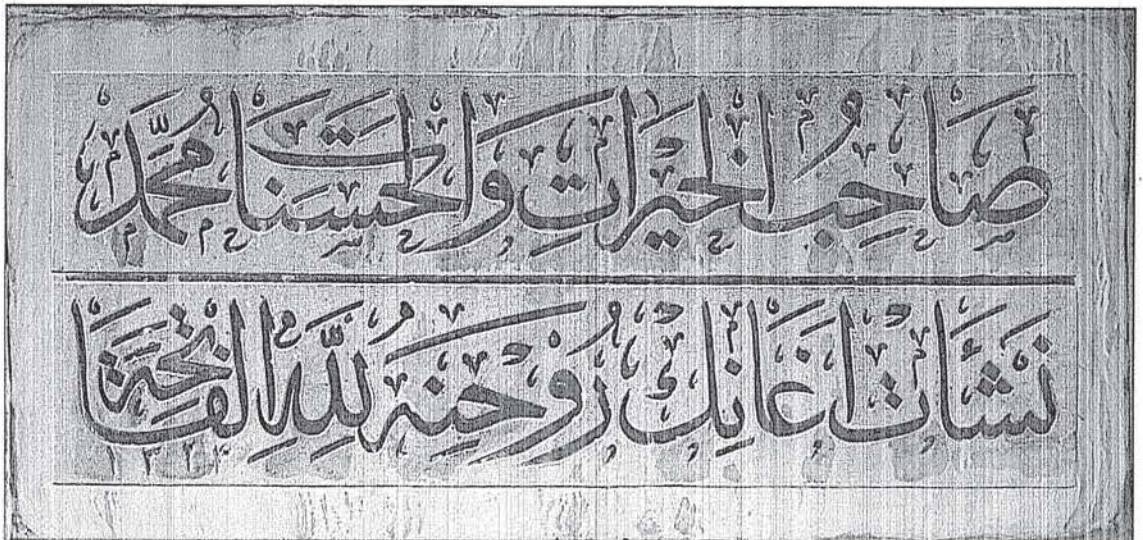 صَاحِبُ الْخَيْرَاتِ وَالْحَسَنَاتِ مُحَمَّد
نَشْأَتْ اغَانِكْ رُوحِنَه لِلّٰهِ الْفَاتِحَة
١٣٢٣